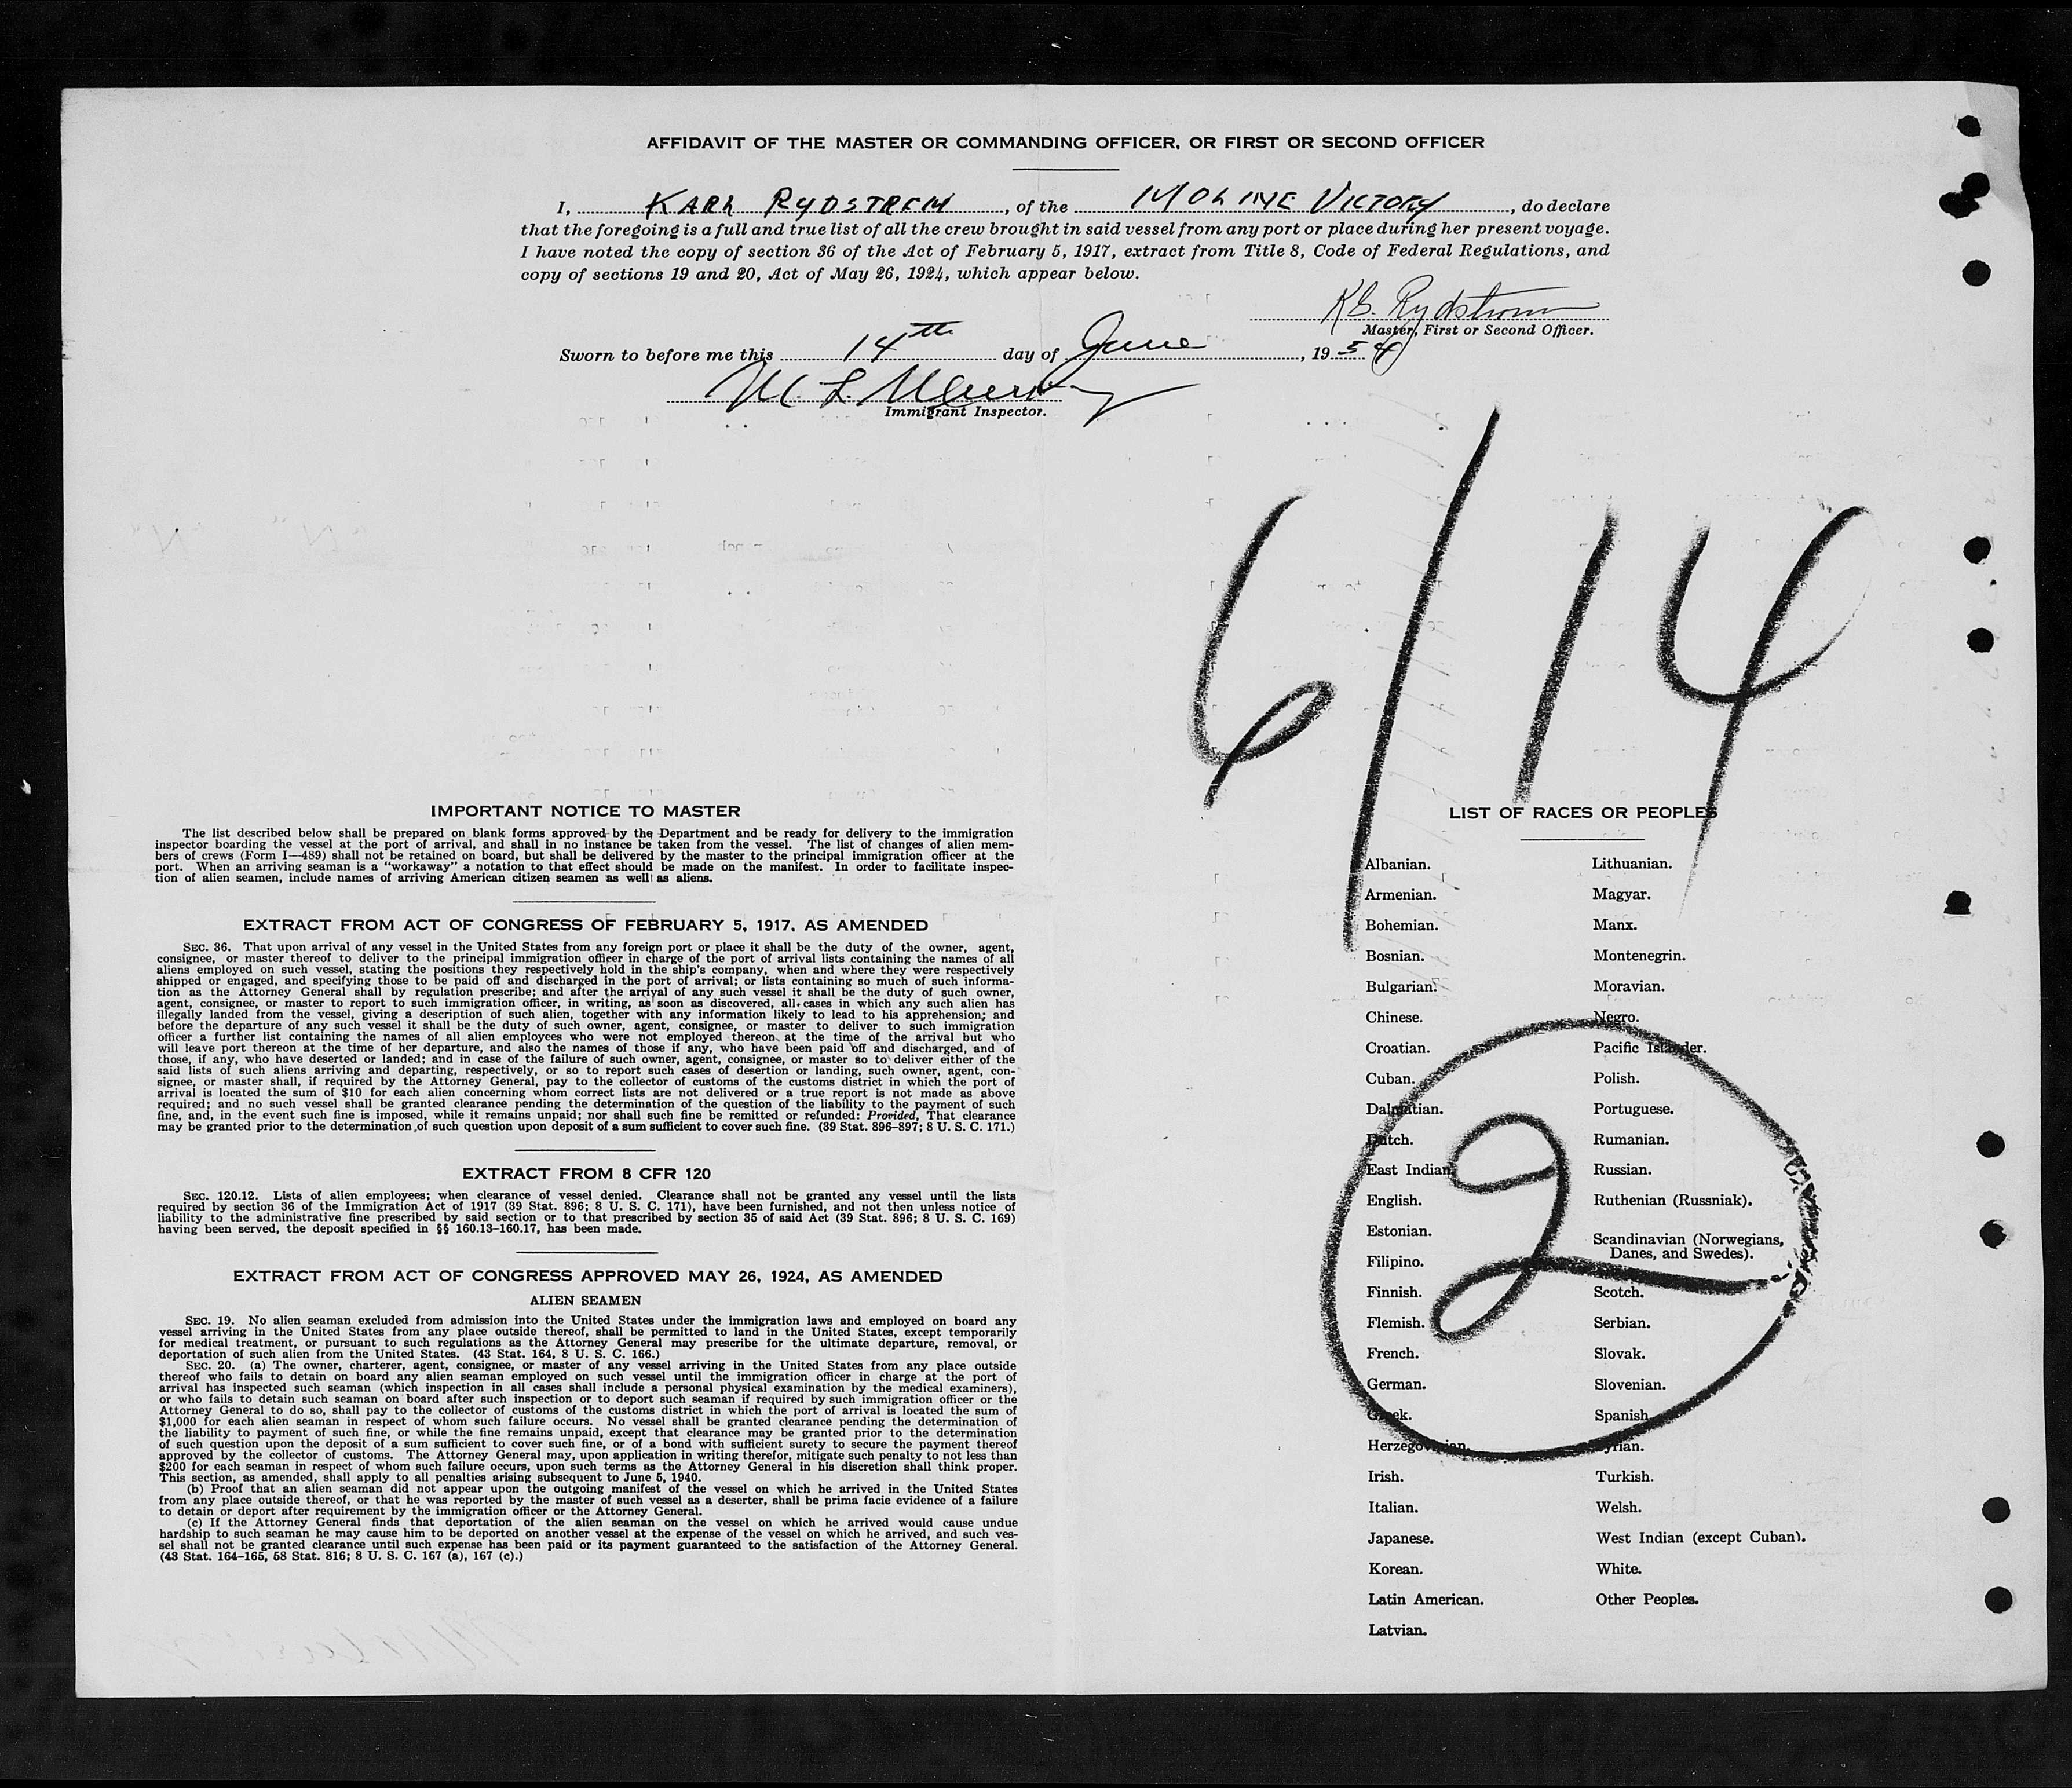 AFFIDAVIT OF THE MASTER OR COMMANDING OFFICER, OR FIRST OR SECOND OFFICER
I, KARL RYDSTREM, of the MOLINE VICTORY, do declare
that the foregoing is a full and true list of all the crew brought in said vessel from any port or place during her present voyage.
I have noted the copy of section 36 of the Act of February 5, 1917, extract from Title 8, Code of Federal Regulations, and
copy of sections 19 and 20, Act of May 26, 1924, which appear below.
Rydstrom
Master, First or Second Officer.
Sworn to before me this 14th day of June, 1954
M. L.
Immigrant Inspector.
6/14
IMPORTANT NOTICE TO MASTER
The list described below shall be prepared on blank forms approved by the Department and be ready for delivery to the immigration
inspector boarding the vessel at the port of arrival, and shall in no instance be taken from the vessel. The list of changes of alien mem-
bers of crews (Form I—489) shall not be retained on board, but shall be delivered by the master to the principal immigration officer at the
port. When an arriving seaman is a "workaway" a notation to that effect should be made on the manifest. In order to facilitate inspec-
tion of alien seamen, include names of arriving American citizen seamen as well as aliens.
EXTRACT FROM ACT OF CONGRESS OF FEBRUARY 5, 1917, AS AMENDED
SEC. 36. That upon arrival of any vessel in the United States from any foreign port or place it shall be the duty of the owner, agent,
consignee, or master thereof to deliver to the principal immigration officer in charge of the port of arrival lists containing the names of all
aliens employed on such vessel, stating the positions they respectively hold in the ship's company, when and where they were respectively
shipped or engaged, and specifying those to be paid off and discharged in the port of arrival; or lists containing so much of such informa-
tion as the Attorney General shall by regulation prescribe; and after the arrival of any such vessel it shall be the duty of such owner,
agent, consignee, or master to report to such immigration officer, in writing, as soon as discovered, all cases in which any such alien has
illegally landed from the vessel, giving a description of such alien, together with any information likely to lead to his apprehension; and
before the departure of any such vessel it shall be the duty of such owner, agent, consignee, or master to deliver to such immigration
officer a further list containing the names of all alien employees who were not employed thereon at the time of the arrival but who
will leave port thereon at the time of her departure, and also the names of those if any, who have been paid off and discharged, and of
those, if any, who have deserted or landed; and in case of the failure of such owner, agent, consignee, or master so to deliver either of the
said lists of such aliens arriving and departing, respectively, or so to report such cases of desertion or landing, such owner, agent, con-
signee, or master shall, if required by the Attorney General, pay to the collector of customs of the customs district in which the port of
arrival is located the sum of $10 for each alien concerning whom correct lists are not delivered or a true report is not made as above
required; and no such vessel shall be granted clearance pending the determination of the question of the liability to the payment of such
fine, and, in the event such fine is imposed, while it remains unpaid; nor shall such fine be remitted or refunded: Provided, That clearance
may be granted prior to the determination of such question upon deposit of a sum sufficient to cover such fine. (39 Stat. 896–897; 8 U. S. C. 171.)
EXTRACT FROM 8 CFR 120
SEC. 120.12. Lists of alien employees; when clearance of vessel denied. Clearance shall not be granted any vessel until the lists
required by section 36 of the Immigration Act of 1917 (39 Stat. 896; 8 U. S. C. 171), have been furnished, and not then unless notice of
liability to the administrative fine prescribed by said section or to that prescribed by section 35 of said Act (39 Stat. 896; 8 U. S. C. 169)
having been served, the deposit specified in §§ 160.13–160.17, has been made.
EXTRACT FROM ACT OF CONGRESS APPROVED MAY 26, 1924, AS AMENDED
ALIEN SEAMEN
SEC. 19. No alien seaman excluded from admission into the United States under the immigration laws and employed on board any
vessel arriving in the United States from any place outside thereof, shall be permitted to land in the United States, except temporarily
for medical treatment, or pursuant to such regulations as the Attorney General may prescribe for the ultimate departure, removal, or
deportation of such alien from the United States. (43 Stat. 164, 8 U. S. C. 166.)
SEC. 20. (a) The owner, charterer, agent, consignee, or master of any vessel arriving in the United States from any place outside
thereof who fails to detain on board any alien seaman employed on such vessel until the immigration officer in charge at the port of
arrival has inspected such seaman (which inspection in all cases shall include a personal physical examination by the medical examiners),
or who fails to detain such seaman on board after such inspection or to deport such seaman if required by such immigration officer or the
Attorney General to do so, shall pay to the collector of customs of the customs district in which the port of arrival is located the sum of
$1,000 for each alien seaman in respect of whom such failure occurs. No vessel shall be granted clearance pending the determination of
the liability to payment of such fine, or while the fine remains unpaid, except that clearance may be granted prior to the determination
of such question upon the deposit of a sum sufficient to cover such fine, or of a bond with sufficient surety to secure the payment thereof
approved by the collector of customs. The Attorney General may, upon application in writing therefor, mitigate such penalty to not less than
$200 for each seaman in respect of whom such failure occurs, upon such terms as the Attorney General in his discretion shall think proper.
This section, as amended, shall apply to all penalties arising subsequent to June 5, 1940.
(b) Proof that an alien seaman did not appear upon the outgoing manifest of the vessel on which he arrived in the United States
from any place outside thereof, or that he was reported by the master of such vessel as a deserter, shall be prima facie evidence of a failure
to detain or deport after requirement by the immigration officer or the Attorney General.
(c) If the Attorney General finds that deportation of the alien seaman on the vessel on which he arrived would cause undue
hardship to such seaman he may cause him to be deported on another vessel at the expense of the vessel on which he arrived, and such ves-
sel shall not be granted clearance until such expense has been paid or its payment guaranteed to the satisfaction of the Attorney General.
(43 Stat. 164–165, 58 Stat. 816; 8 U. S. C. 167 (a), 167 (c).)
LIST OF RACES OR PEOPLES
Albanian.
Armenian.
Bohemian.
Bosnian.
Bulgarian.
Chinese.
Croatian.
Cuban.
Dalmatian.
Dutch.
East Indian
English.
Estonian.
Filipino.
Finnish.
Flemish.
French.
German.
Greek.
Herzegovinian.
Irish.
Italian.
Japanese.
Korean.
Latin American.
Latvian.
Lithuanian.
Magyar.
Manx.
Montenegrin.
Moravian.
Negro.
Pacific Islander.
Polish.
Portuguese.
Rumanian.
Russian.
Ruthenian (Russniak).
Scandinavian (Norwegians,
Danes, and Swedes).
Scotch.
Serbian.
Slovak.
Slovenian.
Spanish
Syrian.
Turkish.
Welsh.
West Indian (except Cuban).
White.
Other Peoples.
2